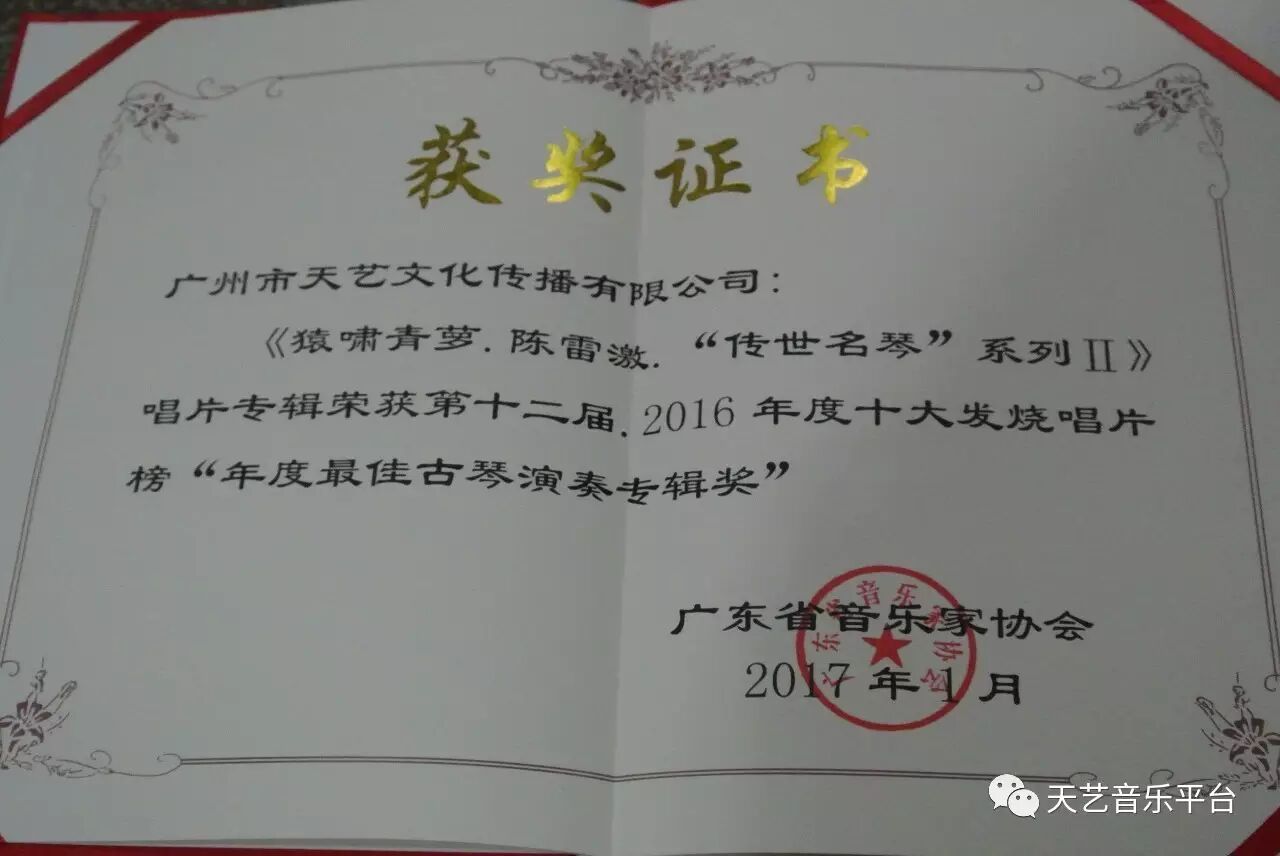 获奖证书
广州市天艺文化传播有限公司：
《猿啸青萝.陈雷激.“传世名琴”系列Ⅱ》
唱片专辑荣获第十二届.2016年度十大发烧唱片
榜“年度最佳古琴演奏专辑奖”
广东省音乐家协会
2017年1月
广东省音乐家协会
天艺音乐平台